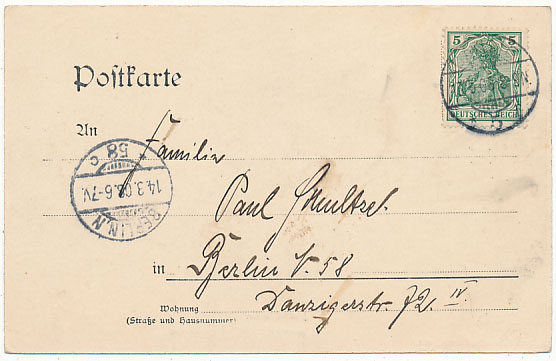 5 5
DEUTSCHES REICH
Postkarte
An
Familie
58 c
14.3.03.6-7V.
BERLIN, N
Paul Schultzel.
in Berlin N. 58
Wohnung Danzigerstr. 72. IV.
(Straße und Hausnummer)